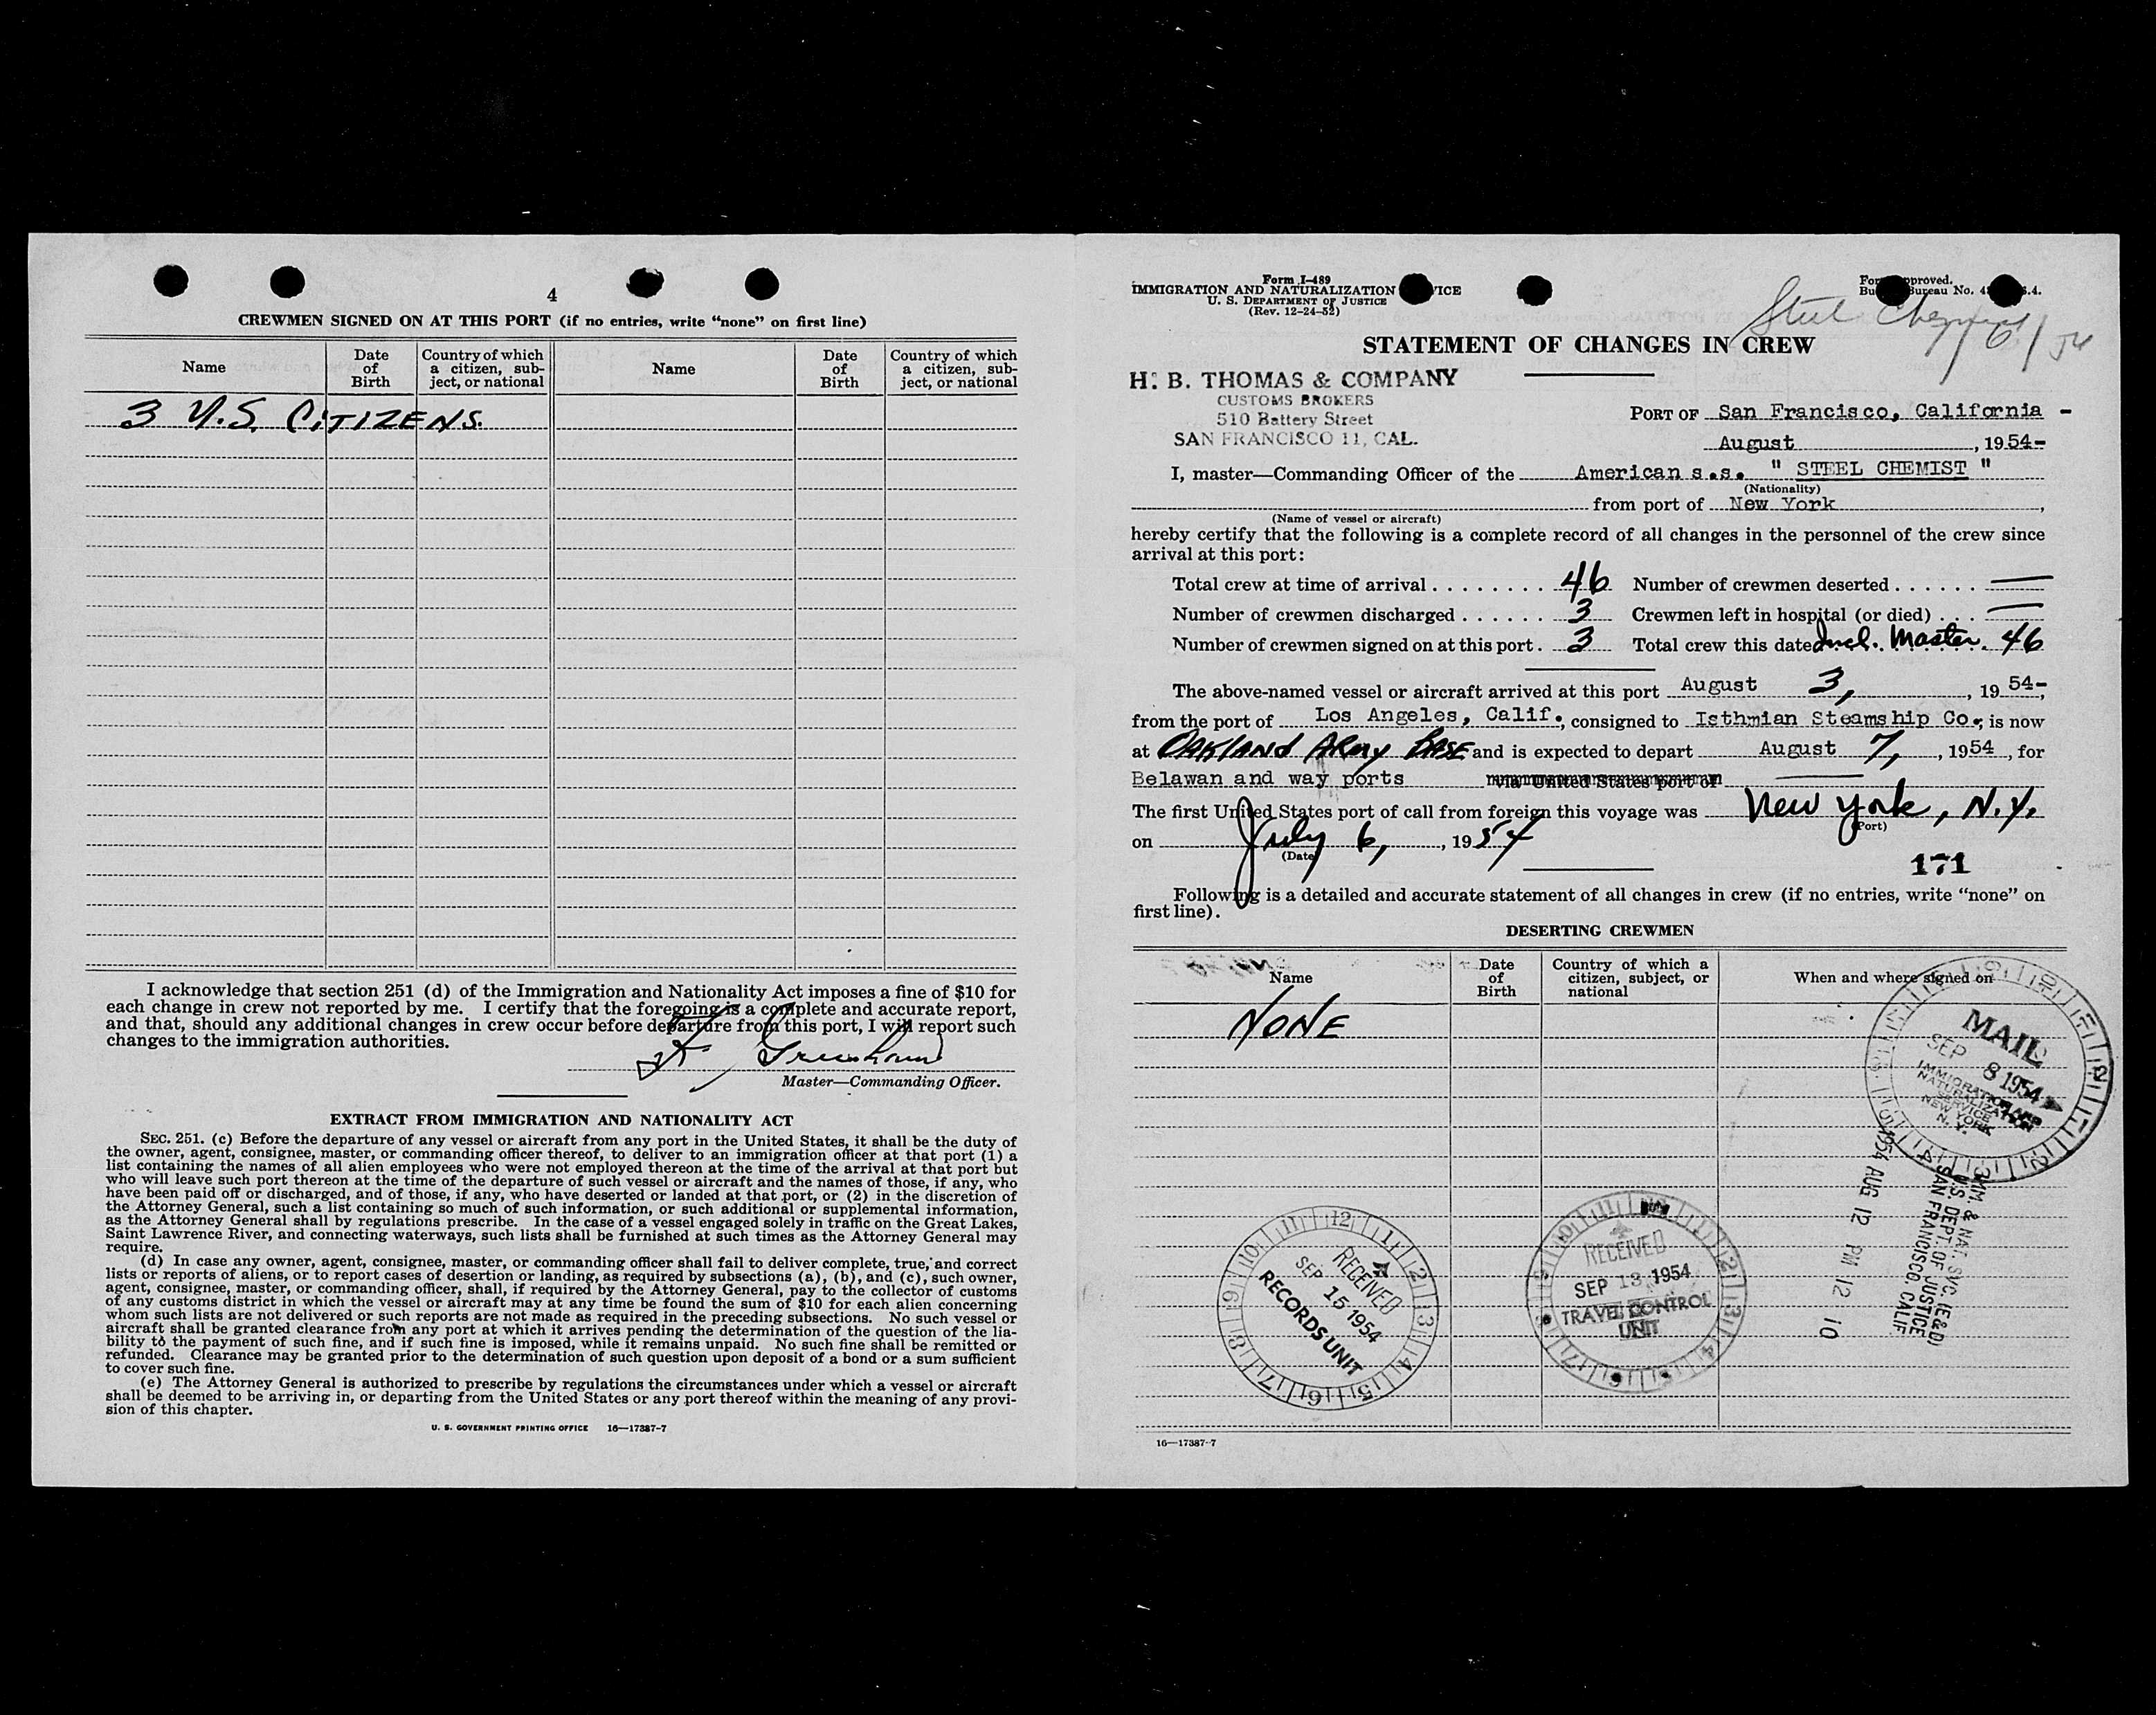 4
CREWMEN SIGNED ON AT THIS PORT (if no entries, write “none” on first line)
Name
Date of Birth
Country of which a citizen, subject, or national
Name
Date of Birth
Country of which a citizen, subject, or national
3 U.S. CITIZENS.
I acknowledge that section 251 (d) of the Immigration and Nationality Act imposes a fine of $10 for
each change in crew not reported by me. I certify that the foregoing is a complete and accurate report,
and that, should any additional changes in crew occur before departure from this port, I will report such
changes to the immigration authorities.
Master—Commanding Officer.
EXTRACT FROM IMMIGRATION AND NATIONALITY ACT
SEC. 251. (c) Before the departure of any vessel or aircraft from any port in the United States, it shall be the duty of
the owner, agent, consignee, master, or commanding officer thereof, to deliver to an immigration officer at that port (1) a
list containing the names of all alien employees who were not employed thereon at the time of the arrival at that port but
who will leave such port thereon at the time of the departure of such vessel or aircraft and the names of those, if any, who
have been paid off or discharged, and of those, if any, who have deserted or landed at that port, or (2) in the discretion of
the Attorney General, such a list containing so much of such information, or such additional or supplemental information,
as the Attorney General shall by regulations prescribe. In the case of a vessel engaged solely in traffic on the Great Lakes,
Saint Lawrence River, and connecting waterways, such lists shall be furnished at such times as the Attorney General may
require.
(d) In case any owner, agent, consignee, master, or commanding officer shall fail to deliver complete, true, and correct
lists or reports of aliens, or to report cases of desertion or landing, as required by subsections (a), (b), and (c), such owner,
agent, consignee, master, or commanding officer, shall, if required by the Attorney General, pay to the collector of customs
of any customs district in which the vessel or aircraft may at any time be found the sum of $10 for each alien concerning
whom such lists are not delivered or such reports are not made as required in the preceding subsections. No such vessel or
aircraft shall be granted clearance from any port at which it arrives pending the determination of the question of the lia-
bility to the payment of such fine, and if such fine is imposed, while it remains unpaid. No such fine shall be remitted or
refunded. Clearance may be granted prior to the determination of such question upon deposit of a bond or a sum sufficient
to cover such fine.
(e) The Attorney General is authorized to prescribe by regulations the circumstances under which a vessel or aircraft
shall be deemed to be arriving in, or departing from the United States or any port thereof within the meaning of any provi-
sion of this chapter.
U. S. GOVERNMENT PRINTING OFFICE 16—17387-7
Form I-489
IMMIGRATION AND NATURALIZATION
U. S. DEPARTMENT OF JUSTICE
(Rev. 12-24-52)
Bureau No.
Steel Chemist
/54
STATEMENT OF CHANGES IN CREW
H. B. THOMAS & COMPANY
CUSTOMS BROKERS
510 Battery Street
SAN FRANCISCO 11, CAL.
PORT OF San Francisco, California -
August , 1954-
I, master—Commanding Officer of the American s.s. " STEEL CHEMIST "
(Nationality)
from port of New York ,
(Name of vessel or aircraft)
hereby certify that the following is a complete record of all changes in the personnel of the crew since
arrival at this port:
Total crew at time of arrival . . . . . . . . 46 Number of crewmen deserted . . . . . . —
Number of crewmen discharged . . . . . . 3 Crewmen left in hospital (or died) . . . —
Number of crewmen signed on at this port . 3 Total crew this date Incl. Master. 46
The above-named vessel or aircraft arrived at this port August 3, , 19 54-,
from the port of Los Angeles, Calif., consigned to Isthmian Steamship Co., is now
at OAKLAND ARMY BASE and is expected to depart August 7, , 1954 , for
Belawan and way ports via United States port of
The first United States port of call from foreign this voyage was New York, N.Y.
(Port)
on July 6, , 1954
(Date)
171
Following is a detailed and accurate statement of all changes in crew (if no entries, write “none” on
first line).
DESERTING CREWMEN
Name
Date of Birth
Country of which a citizen, subject, or national
When and where signed on
NONE
MAIL
SEP 8 1954
IMMIGRATION AND
NATURALIZATION
SERVICE
NEW YORK
N. Y.
IMM. & NAT. SVC. (E&D)
U.S. DEPT. OF JUSTICE
SAN FRANCISCO, CALIF.
1954 AUG 12 PM 12 10
RECEIVED
SEP 15 1954
RECORDS UNIT
RECEIVED
SEP 13 1954
TRAVEL CONTROL
UNIT
16—17387-7